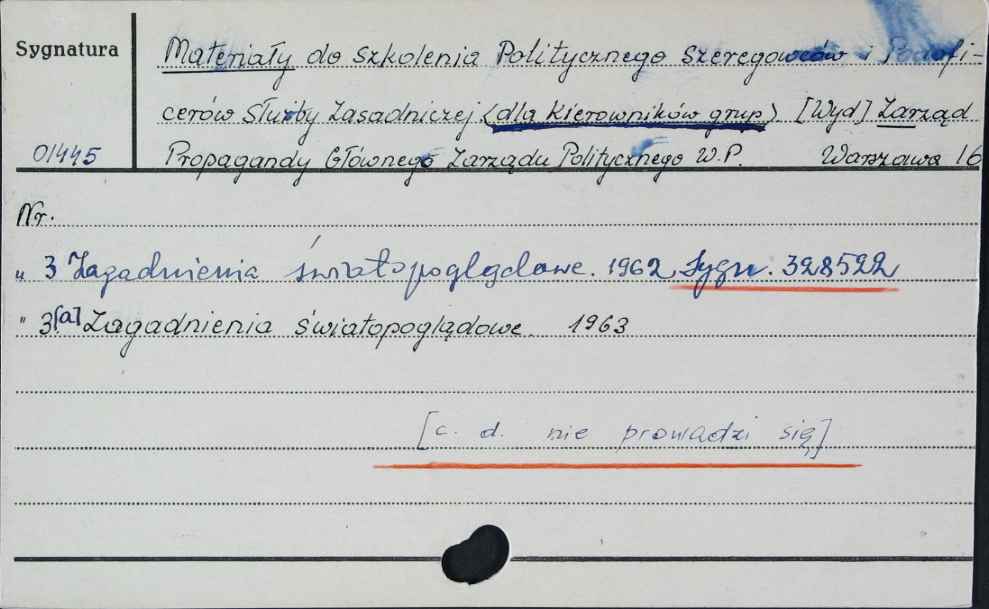 Sygnatura
Materiały do Szkolenia Politycznego Szeregowców i Podofi-
cerów Służby Zasadniczej (dla Kierowników grup) [Wyd] Zarząd
01445 Propagandy Głównego Zarządu Politycznego W.P. Warszawa 16
Nr.
" 3 Zagadnienia światopoglądowe. 1962 Sygn. 328522
" 3[a] Zagadnienia światopoglądowe. 1963
[c. d. nie prowadzi się]